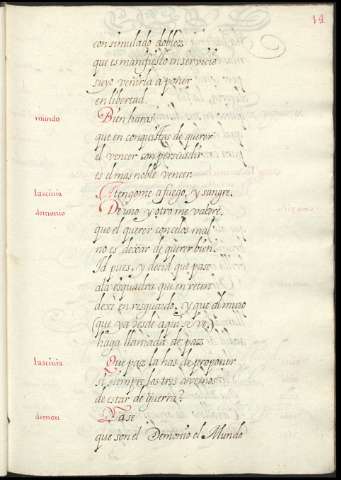 12
con simulado doblez
que es manifiesto en servicio
suyo venirla a poner
en libertad.
mundo
Bien haras
que en conquistas de querer
el vencer son persuadir
es el mas noble vencer
Lascivia
Atengome a fuego, y sangre.
demonio
De uno y otro me valdre,
que el querer con celos mal
no es dexar de querer bien.
Id pues, y decid que pase
ala esquadra que en reten
dexè en resguardo, y que de mio
(que ya desde aquí se ve)
haga llamada de paz
Lascivia
Que paz la has de proponer
si siempre los tres avemos
de estar de guerra?
demon
Pase
que son el Demonio el Mundo